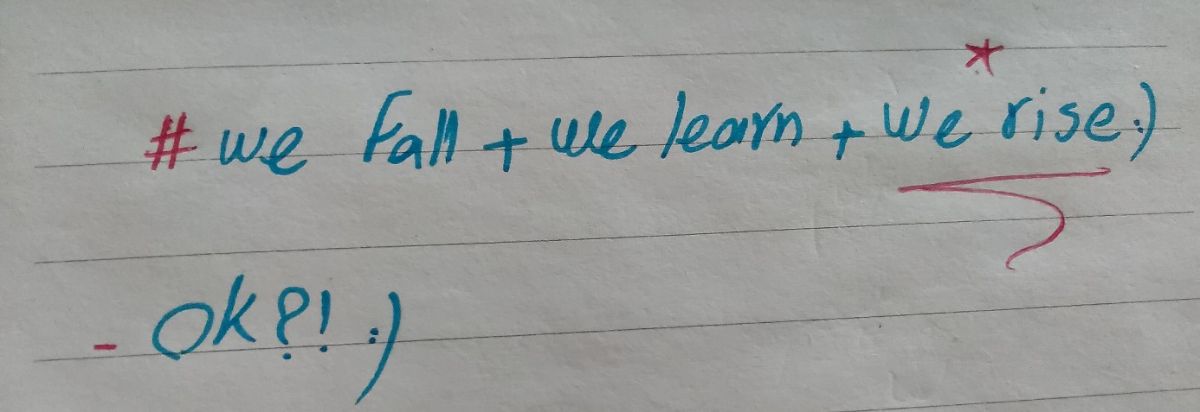 # we fall + we learn + we rise :)
- Ok?! :)